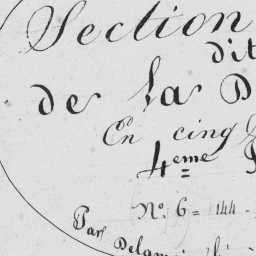 Section
dit
de la D
En cinq
4eme P
N°. 6 = 144
Par